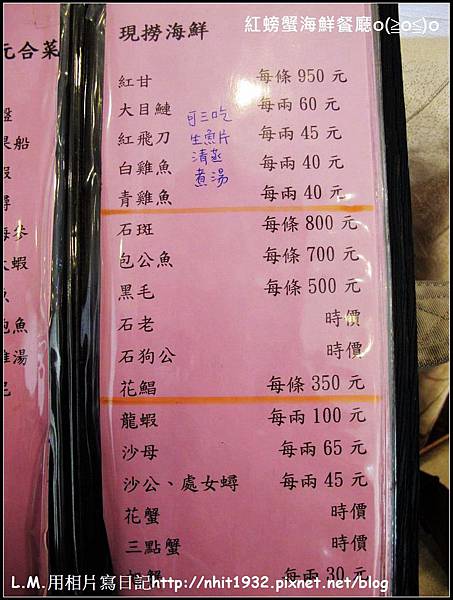 紅螃蟹海鮮餐廳o(≧o≦)o
元合菜
現撈海鮮
紅甘 每條 950 元
大目鰱 每兩 60 元
紅飛刀 每兩 45 元
白雞魚 每兩 40 元
青雞魚 每兩 40 元
可三吃
生魚片
清蒸
煮湯
石斑 每條 800 元
包公魚 每條 700 元
黑毛 每條 500 元
石老 時價
石狗公 時價
花鯧 每條 350 元
龍蝦 每兩 100 元
沙母 每兩 65 元
沙公、處女蟳 每兩 45 元
花蟹 時價
三點蟹 時價
每兩 30 元
船
蝦
蟳
海參
蝦
鮑魚
雞湯
L.M.用相片寫日記http://nhit1932.pixnet.net/blog